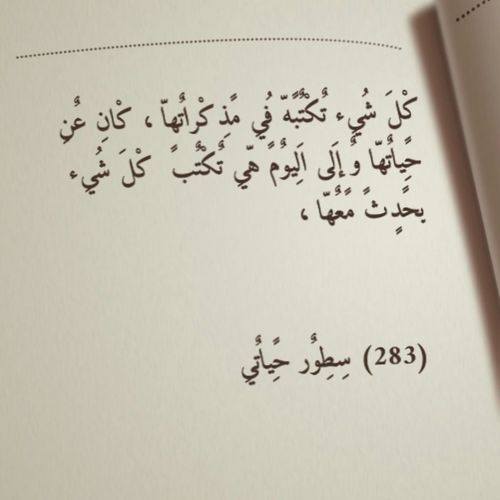 كْلَ شُيء تٌكْتٌبًهّ فُي مًذِكْراتٌهاّ ، كْانِ عٌنِ
حًياتٌهّا وٌ إلَى الَيوٌمً هّي تٌكْتٌبً كْلَ شُيء
يحًدِثً مًعٌهّا ،
(283) سِطِوٌر حًياتٌي